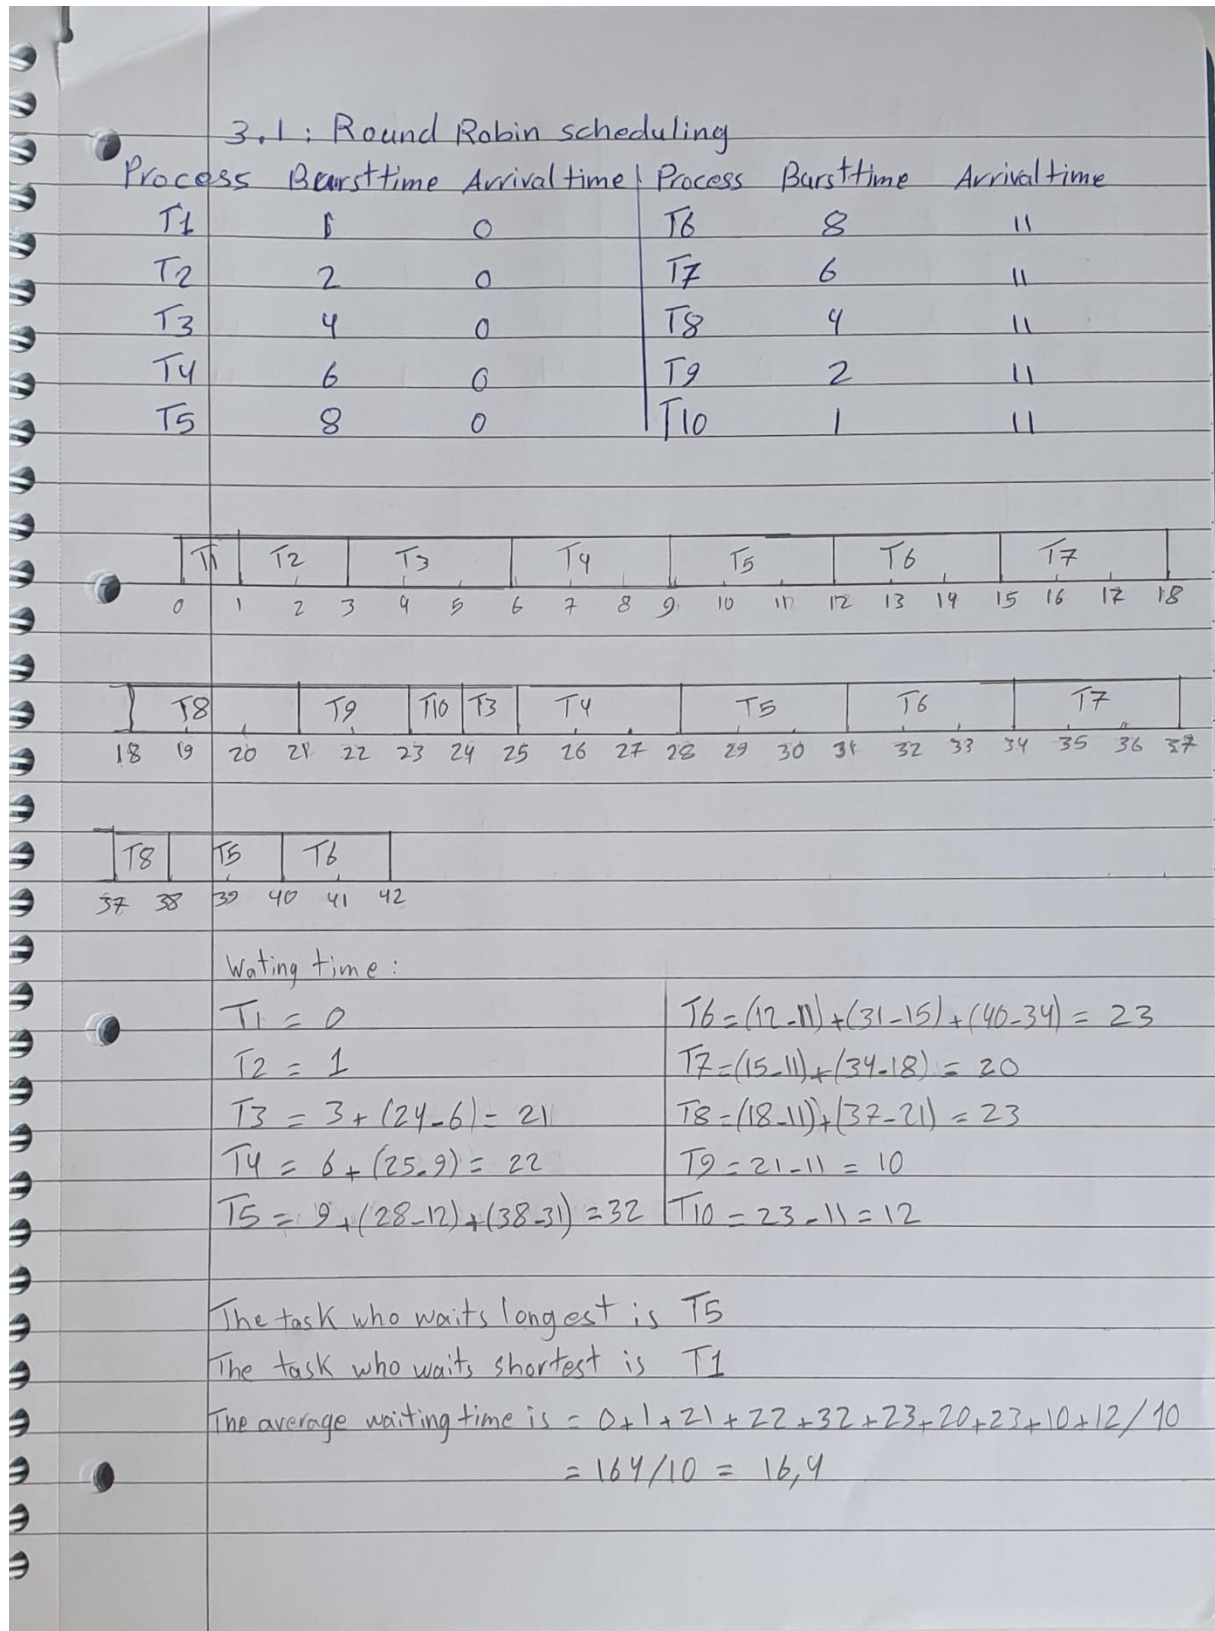 3.1: Round Robin scheduling
Process Bursttime Arrivaltime Process Bursttime Arrivaltime
T1 1 0 T6 8 11
T2 2 0 T7 6 11
T3 4 0 T8 4 11
T4 6 0 T9 2 11
T5 8 0 T10 1 11
T1 T2 T3 T4 T5 T6 T7
0 1 2 3 4 5 6 7 8 9 10 11 12 13 14 15 16 17 18
T8 T9 T10 T3 T4 T5 T6 T7
18 19 20 21 22 23 24 25 26 27 28 29 30 31 32 33 34 35 36 37
T8 T5 T6
37 38 39 40 41 42
Wating time:
T1 = 0 T6 = (12-11)+(31-15)+(40-34) = 23
T2 = 1 T7 = (15-11)+(34-18) = 20
T3 = 3+(24-6) = 21 T8 = (18-11)+(37-21) = 23
T4 = 6+(25-9) = 22 T9 = 21-11 = 10
T5 = 9+(28-12)+(38-31) = 32 T10 = 23-11 = 12
The task who waits longest is T5
The task who waits shortest is T1
The average waiting time is = 0+1+21+22+32+23+20+23+10+12/10
= 164/10 = 16,4